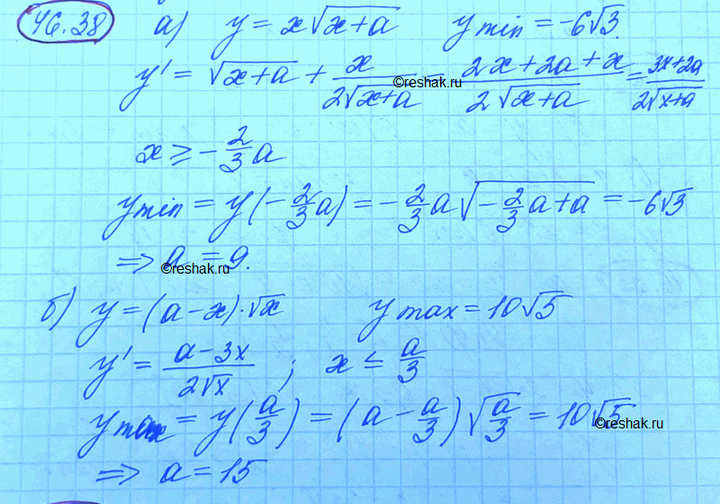 46.38 а) y = x√(x+a) y min = -6√3.
y' = √(x+a) + x/(2√(x+a)) = (2x+2a+x)/(2√(x+a)) = (3x+2a)/(2√(x+a))
©reshak.ru
x ≥ -2/3 a
y min = y(-2/3 a) = -2/3 a √(-2/3 a + a) = -6√3
⇒ a = 9.
©reshak.ru
б) y = (a-x)·√x y max = 10√5
y' = (a-3x)/(2√x) ; x ≤ a/3
y max = y(a/3) = (a - a/3) √(a/3) = 10√5
©reshak.ru
⇒ a = 15